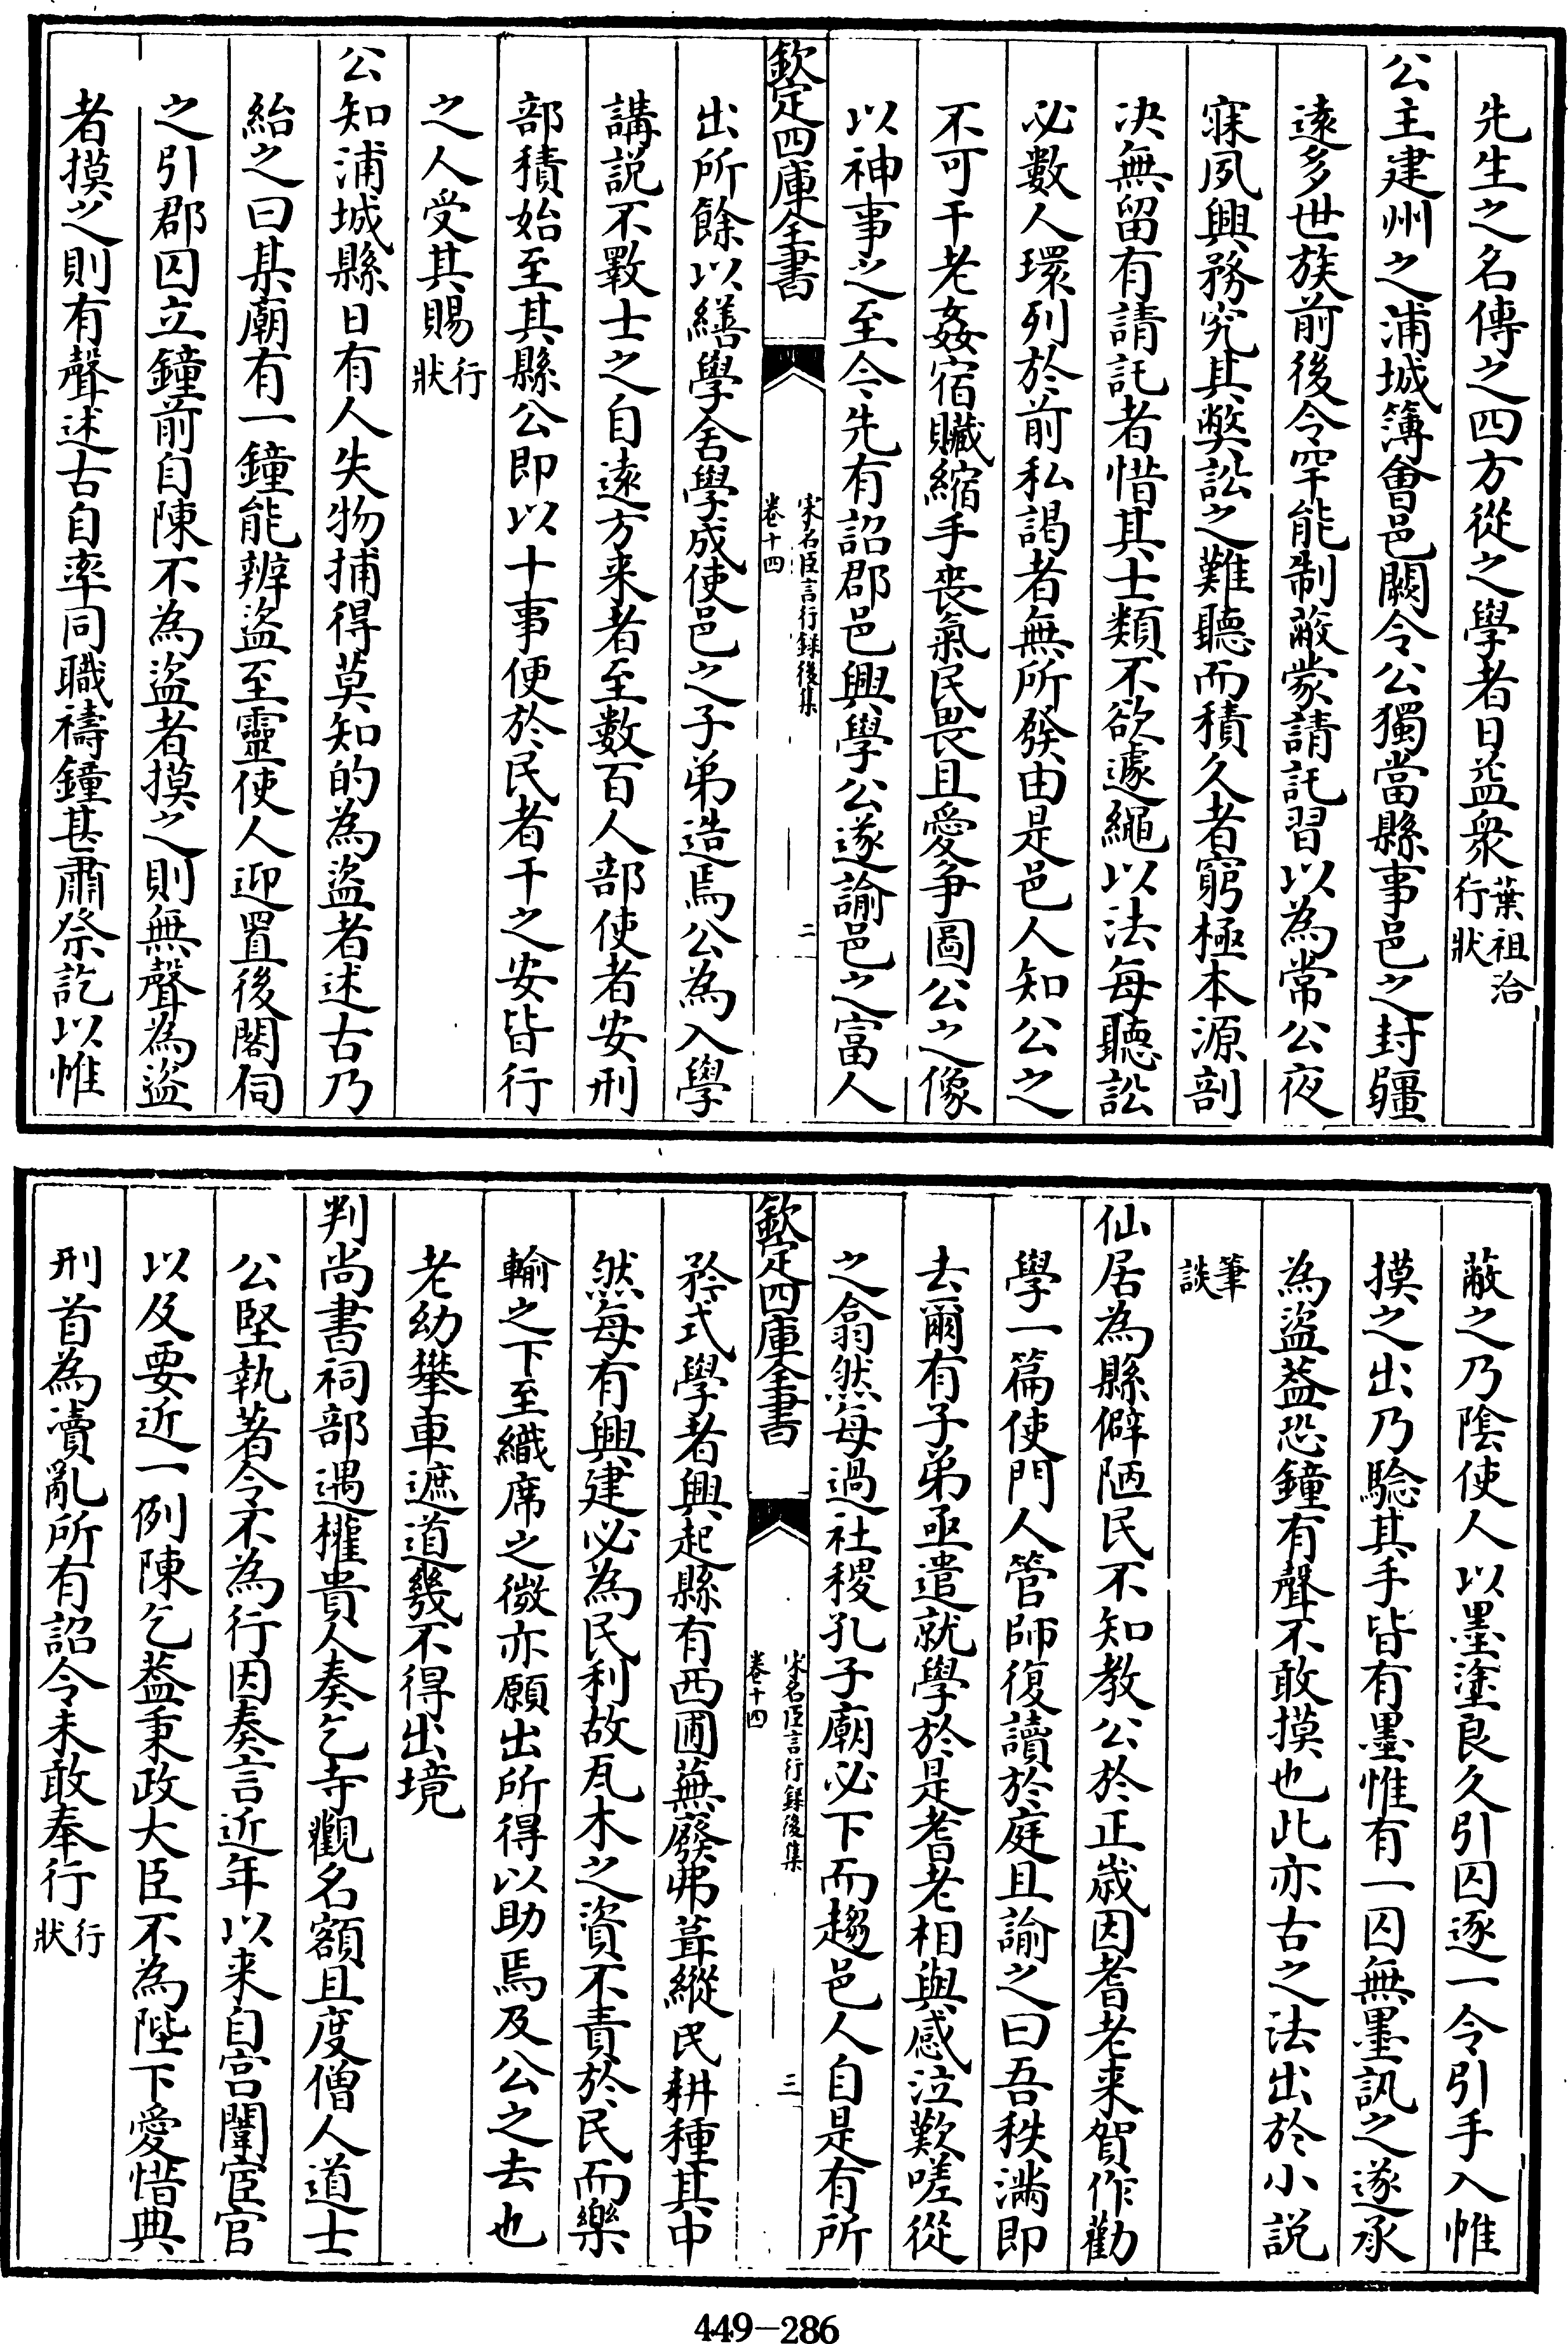 先生之名傳之四方從之學者日益衆葉祖洽行狀
公主建州之浦城簿會邑闕令公獨當縣事邑之封疆
遠多世族前後令罕能制蔽蒙請託習以為常公夜
寐夙興務究其弊訟之難聽而積久者窮極本源剖
决無留有請託者惜其士類不欲遽繩以法每聽訟
必數人環列於前私謁者無所發由是邑人知公之
不可干老姦宿贓縮手喪氣民畏且愛争圖公之像
以神事之至今先有詔郡邑興學公遂諭邑之富人
欽定四庫全書
宋名臣言行録後集
卷十四
二
出所餘以繕學舍學成使邑之子弟造焉公為入學
講説不斁士之自遠方来者至數百人部使者安刑
部積始至其縣公即以十事便於民者干之安皆行
之人受其賜行狀
公知浦城縣日有人失物捕得莫知的為盜者述古乃
紿之曰某廟有一鐘能辨盜至靈使人迎置後閣伺
之引郡囚立鐘前自陳不為盜者摸之則無聲為盜
者摸之則有聲述古自率同職禱鐘甚肅祭訖以帷
蔽之乃陰使人以墨塗良久引囚逐一令引手入帷
摸之出乃驗其手皆有墨惟有一囚無墨訊之遂承
為盜蓋恐鐘有聲不敢摸也此亦古之法出於小説
筆談
仙居為縣僻陋民不知教公於正歲因耆老来賀作勸
學一篇使門人管師復讀於庭且諭之曰吾秩滿即
去爾有子弟亟遣就學於是耆老相與感泣歎嗟從
之翕然每過社稷孔子廟必下而趨邑人自是有所
欽定四庫全書
宋名臣言行録後集
卷十四
三
矜式學者興起縣有西圃蕪廢弗葺縱民耕種其中
然每有興建必為民利故瓦木之資不責於民而樂
輸之下至織席之微亦願出所得以助焉及公之去也
老幼攀車遮道幾不得出境
判尚書祠部遇權貴人奏乞寺觀名額且度僧人道士
公堅執著令不為行因奏言近年以来自宫闈宦官
以及要近一例陳乞蓋秉政大臣不為陛下愛惜典
刑首為瀆亂所有詔令未敢奉行行狀
449-286